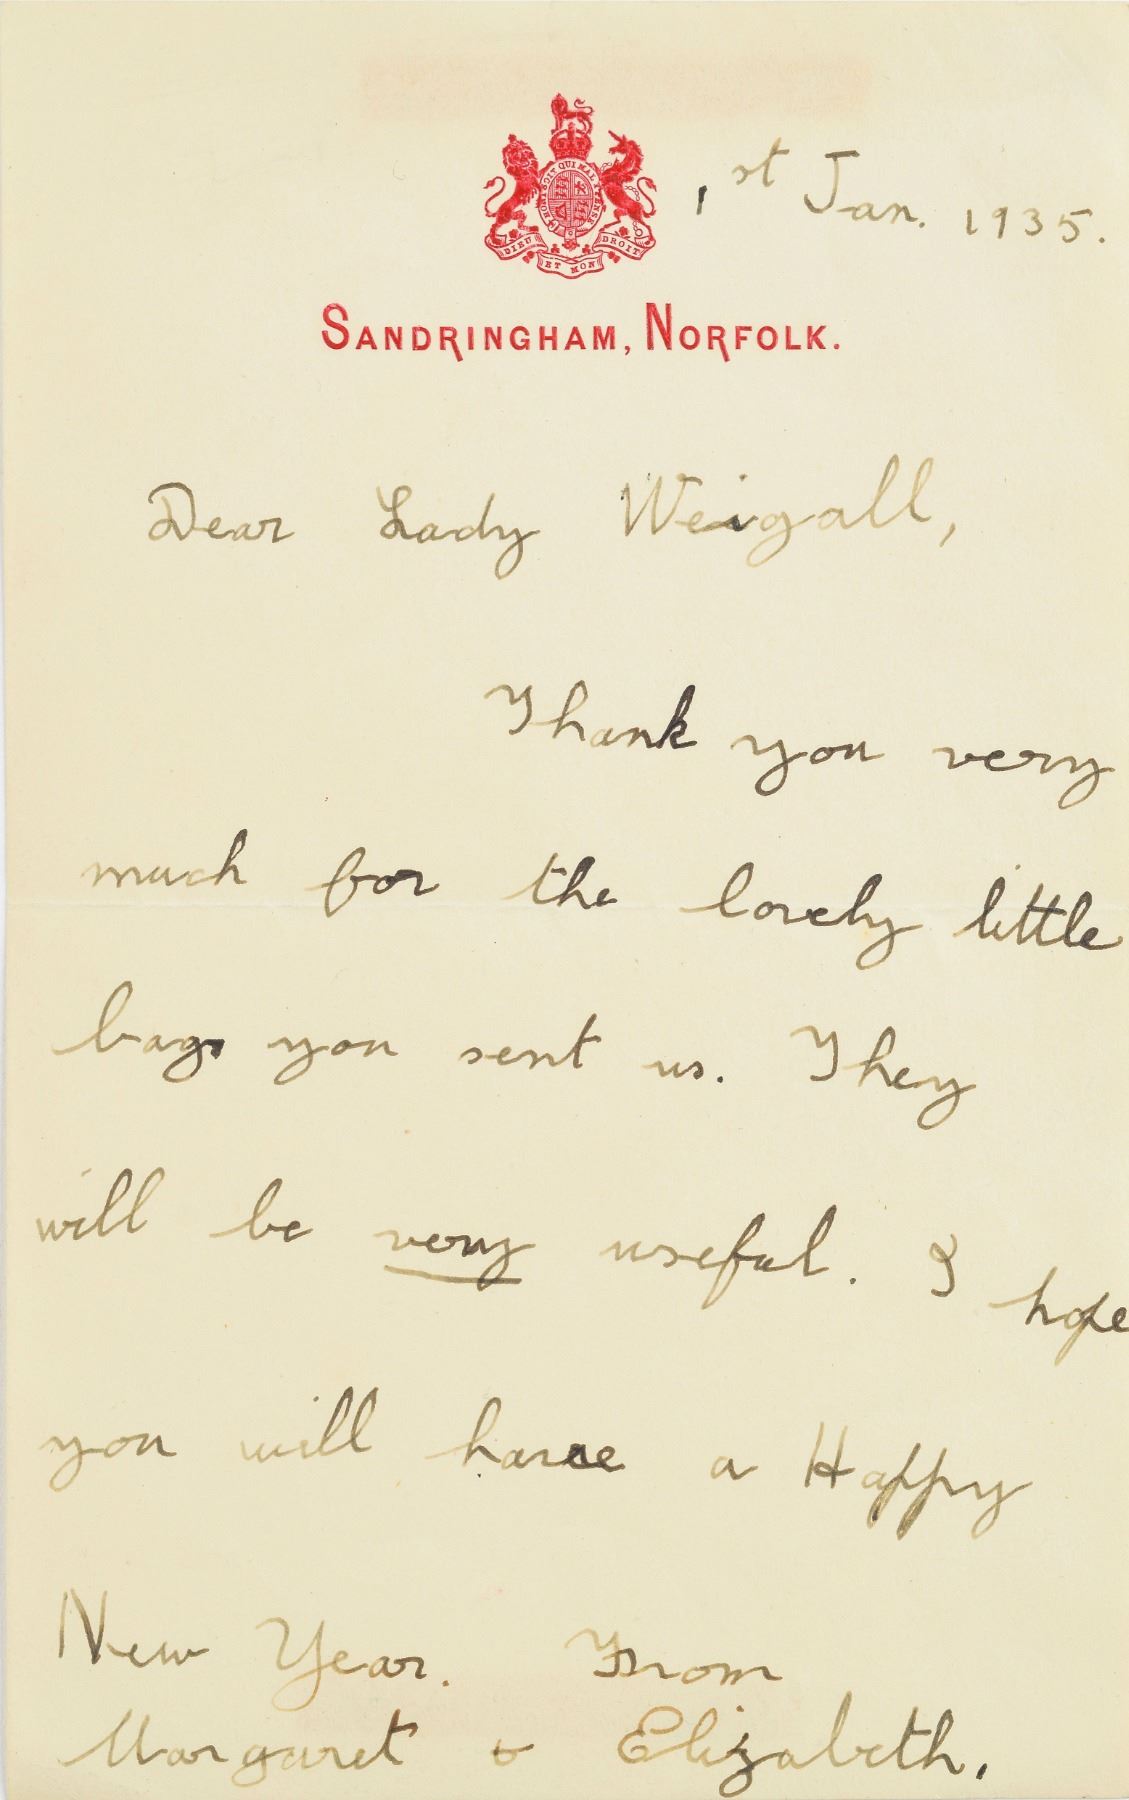 HONI SOIT QUI MAL Y PENSE
DIEU ET MON DROIT
1st Jan. 1935.
SANDRINGHAM, NORFOLK.
Dear Lady Weigall,
Thank you very
much for the lovely little
bags you sent us. They
will be very useful. I hope
you will have a Happy
New Year. From
Margaret & Elizabeth.